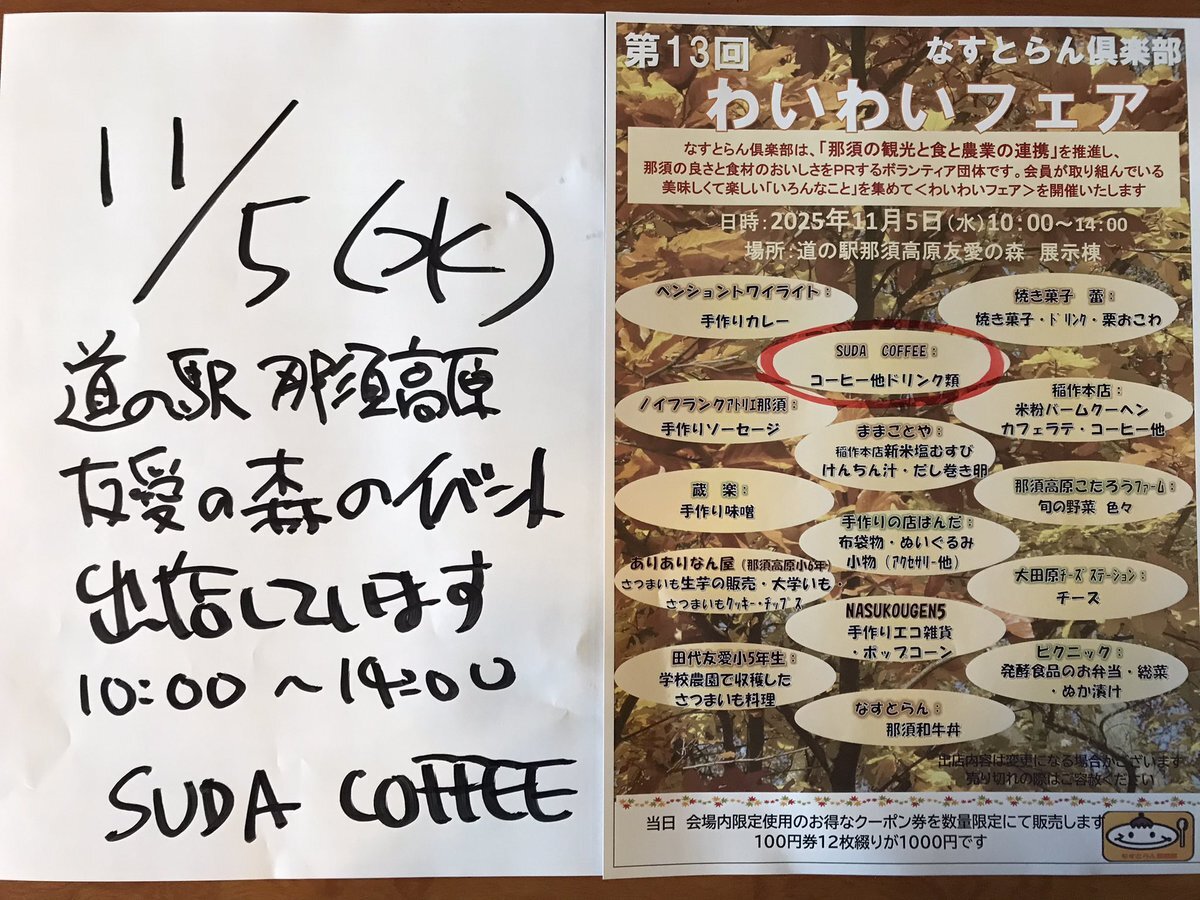 11/5(水)
道の駅 那須高原
友愛の森のイベント
出店しています
10:00~14:00
SUDA COFFEE
第13回 なすとらん倶楽部
わいわいフェア
なすとらん倶楽部は、「那須の観光と食と農業の連携」を推進し、
那須の良さと食材のおいしさをPRするボランティア団体です。会員が取り組んでいる
美味しくて楽しい「いろんなこと」を集めて<わいわいフェア>を開催いたします
日時:2025年11月5日(水)10:00~14:00
場所:道の駅那須高原友愛の森 展示棟
ペンショントワイライト:
手作りカレー
焼き菓子 蕾:
焼き菓子・ドリンク・栗おこわ
SUDA COFFEE:
コーヒー他ドリンク類
ノイフランクアトリエ那須:
手作りソーセージ
稲作本店:
米粉バームクーヘン
カフェラテ・コーヒー他
ままごとや:
稲作本店新米塩むすび
けんちん汁・だし巻き卵
蔵楽:
手作り味噌
那須高原こたろうファーム:
旬の野菜 色々
手作りの店はんだ:
布袋物・ぬいぐるみ
小物(アクセサリー他)
ありありなん屋(那須高原小6年)
さつまいも生芋の販売・大学いも・
さつまいもクッキー・チップス
大田原チーズステーション:
チーズ
NASUKOUGEN5
手作りエコ雑貨
・ポップコーン
田代友愛小5年生:
学校農園で収穫した
さつまいも料理
ピクニック:
発酵食品のお弁当・総菜
・ぬか漬け
なすとらん:
那須和牛丼
出店内容は変更になる場合がございます
売り切れの際はご容赦ください
当日 会場内限定使用のお得なクーポン券を数量限定にて販売します
100円券12枚綴りが1000円です